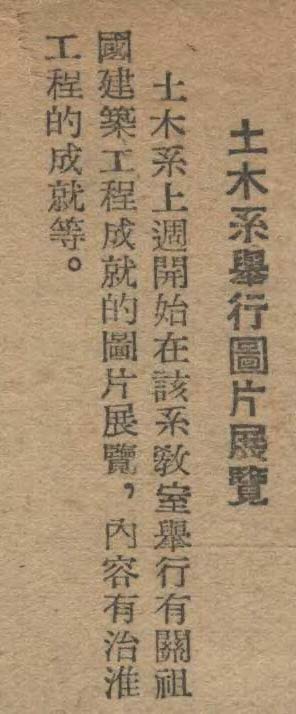 土木系舉行圖片展覽
土木系上週開始在該系敎室舉行有關祖
國建築工程成就的圖片展覽，內容有治淮
工程的成就等。